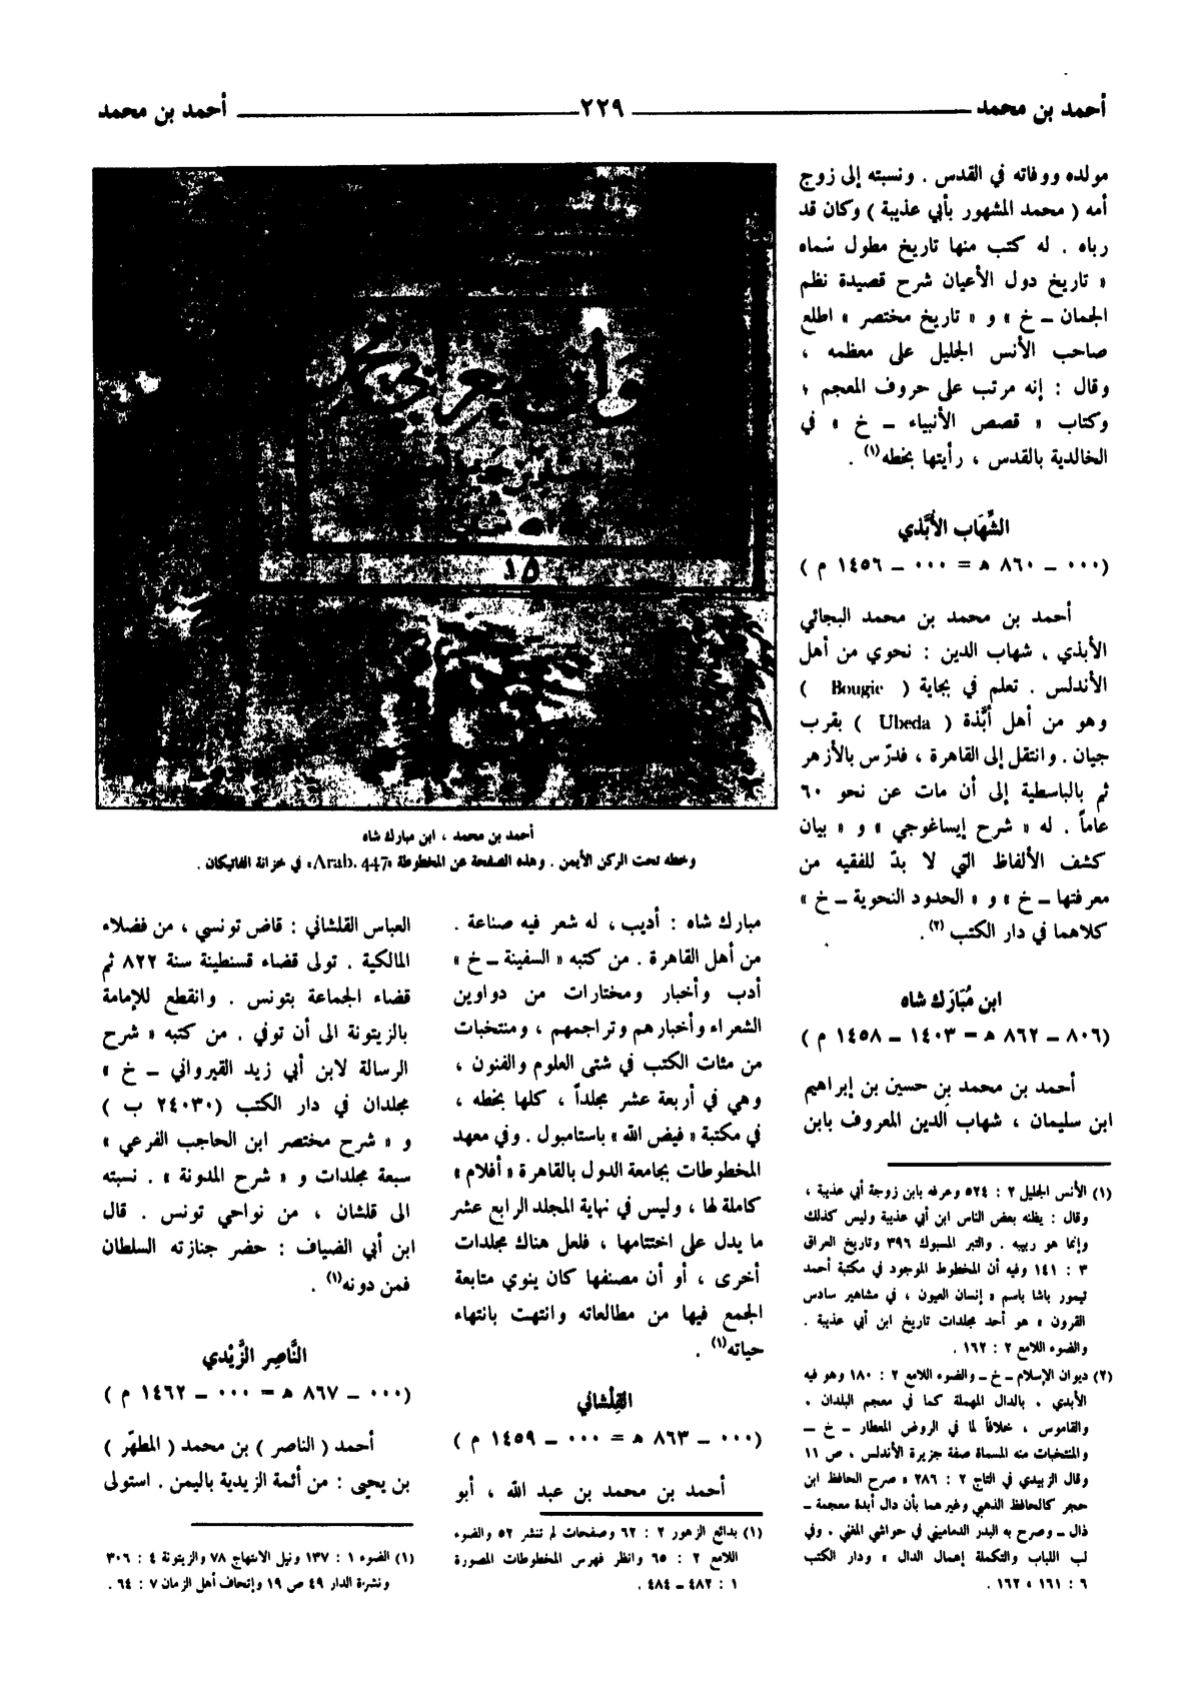 أحمد بن محمد ٢٢٩ أحمد بن محمد
مولده ووفاته في القدس . ونسبته إلى زوج
أمه ( محمد المشهور بأبي عذيبة ) وكان قد
رباه . له كتب منها تاريخ مطول سماه
« تاريخ دول الأعيان شرح قصيدة نظم
الجمان ــ خ » و « تاريخ مختصر » اطلع
صاحب الأنس الجليل على معظمه ،
وقال : إنه مرتب على حروف المعجم ؛
وكتاب « قصص الأنبياء ــ خ » في
الخالدية بالقدس ، رأيتها بخطه(١) .
الشِّهَاب الأُبَّذي
(٠٠٠ ــ ٨٦٠ هـ = ٠٠٠ ــ ١٤٥٦ م )
أحمد بن محمد بن محمد البجائي
الأبذي ، شهاب الدين : نحوي من أهل
الأندلس . تعلم في بجاية ( Bougie )
وهو من أهل أبَّذة ( Ubeda ) بقرب
جيان . وانتقل إلى القاهرة ، فدرّس بالأزهر
ثم بالباسطية إلى أن مات عن نحو ٦٠
عاماً . له « شرح إيساغوجي » و « بيان
كشف الألفاظ التي لا بدّ للفقيه من
معرفتها ــ خ » و « الحدود النحوية ــ خ »
كلاهما في دار الكتب (٢) .
ابن مُبَارَك شاه
(٨٠٦ ــ ٨٦٢ هـ = ١٤٠٣ ــ ١٤٥٨ م )
أحمد بن محمد بن حسين بن إبراهيم
ابن سليمان ، شهاب الدين المعروف بابن
(١) الأنس الجليل ٢ : ٥٢٤ وعرفه بابن زوجة أبي عذيبة ،
وقال : يظنه بعض الناس ابن أبي عذيبة وليس كذلك
وإنما هو ربيبه . والتبر المسبوك ٣٩٦ وتاريخ العراق
٣ : ١٤١ وفيه أن المخطوط الموجود في مكتبة أحمد
تيمور باشا باسم « إنسان العيون ، في مشاهير سادس
القرون » هو أحد مجلدات تاريخ ابن أبي عذيبة .
والضوء اللامع ٢ : ١٦٢ .
(٢) ديوان الإسلام ــ خ ــ والضوء اللامع ٢ : ١٨٠ وهو فيه
الأبدي . بالدال المهملة كما في معجم البلدان .
والقاموس ، خلافاً لما في الروض المعطار ــ خ ــ
والمنتخبات منه المسماة صفة جزيرة الأندلس ، ص ١١
وقال الزبيدي في التاج ٢ : ٢٨٦ « صرح الحافظ ابن
حجر كالحافظ الذهبي وغيرهما بأن دال أبدة معجمة ــ
ذال ــ وصرح به البدر الدماميني في حواشي المغني . وفي
لب اللباب والتكملة إهمال الدال » ودار الكتب
٦ : ١٦١ ، ١٦٢ .
١٥
أحمد بن محمد ، ابن مبارك شاه
وخطه تحت الركن الأيمن . وهذه الصفحة عن المخطوطة «Arab. 447» في خزانة الفاتيكان .
مبارك شاه : أديب ، له شعر فيه صناعة .
من أهل القاهرة . من كتبه « السفينة ــ خ »
أدب وأخبار ومختارات من دواوين
الشعراء وأخبارهم وتراجمهم ، ومنتخبات
من مئات الكتب في شتى العلوم والفنون ،
وهي في أربعة عشر مجلداً ، كلها بخطه ،
في مكتبة « فيض الله » باستامبول . وفي معهد
المخطوطات بجامعة الدول بالقاهرة « أفلام »
كاملة لها ، وليس في نهاية المجلد الرابع عشر
ما يدل على اختتامها ، فلعل هناك مجلدات
أخرى ، أو أن مصنفها كان ينوي متابعة
الجمع فيها من مطالعاته وانتهت بانتهاء
حياته(١) .
القِلْشاني
(٠٠٠ ــ ٨٦٣ هـ = ٠٠٠ ــ ١٤٥٩ م )
أحمد بن محمد بن عبد الله ، أبو
(١) بدائع الزهور ٢ : ٦٢ وصفحات لم تنشر ٥٢ والضوء
اللامع ٢ : ٦٥ وانظر فهرس المخطوطات المصورة
١ : ٤٨٢ ــ ٤٨٤ .
العباس القلشاني : قاض تونسي ، من فضلاء
المالكية . تولى قضاء قسنطينة سنة ٨٢٢ ثم
قضاء الجماعة بتونس . وانقطع للإمامة
بالزيتونة الى أن توفي . من كتبه « شرح
الرسالة لابن أبي زيد القيرواني ــ خ »
مجلدان في دار الكتب (٢٤٠٣٠ ب )
و « شرح مختصر ابن الحاجب الفرعي »
سبعة مجلدات و « شرح المدونة » . نسبته
الى قلشان ، من نواحي تونس . قال
ابن أبي الضياف : حضر جنازته السلطان
فمن دونه(١) .
النَّاصِر الزَّيْدي
(٠٠٠ ــ ٨٦٧ هـ = ٠٠٠ ــ ١٤٦٢ م )
أحمد ( الناصر ) بن محمد ( المطهّر )
بن يحيى : من أئمة الزيدية باليمن . استولى
(١) الضوء ١ : ١٣٧ ونيل الابتهاج ٧٨ والزيتونة ٤ : ٣٠٦
ونشرة الدار ٤٩ ص ١٩ وإتحاف أهل الزمان ٧ : ٦٤ .